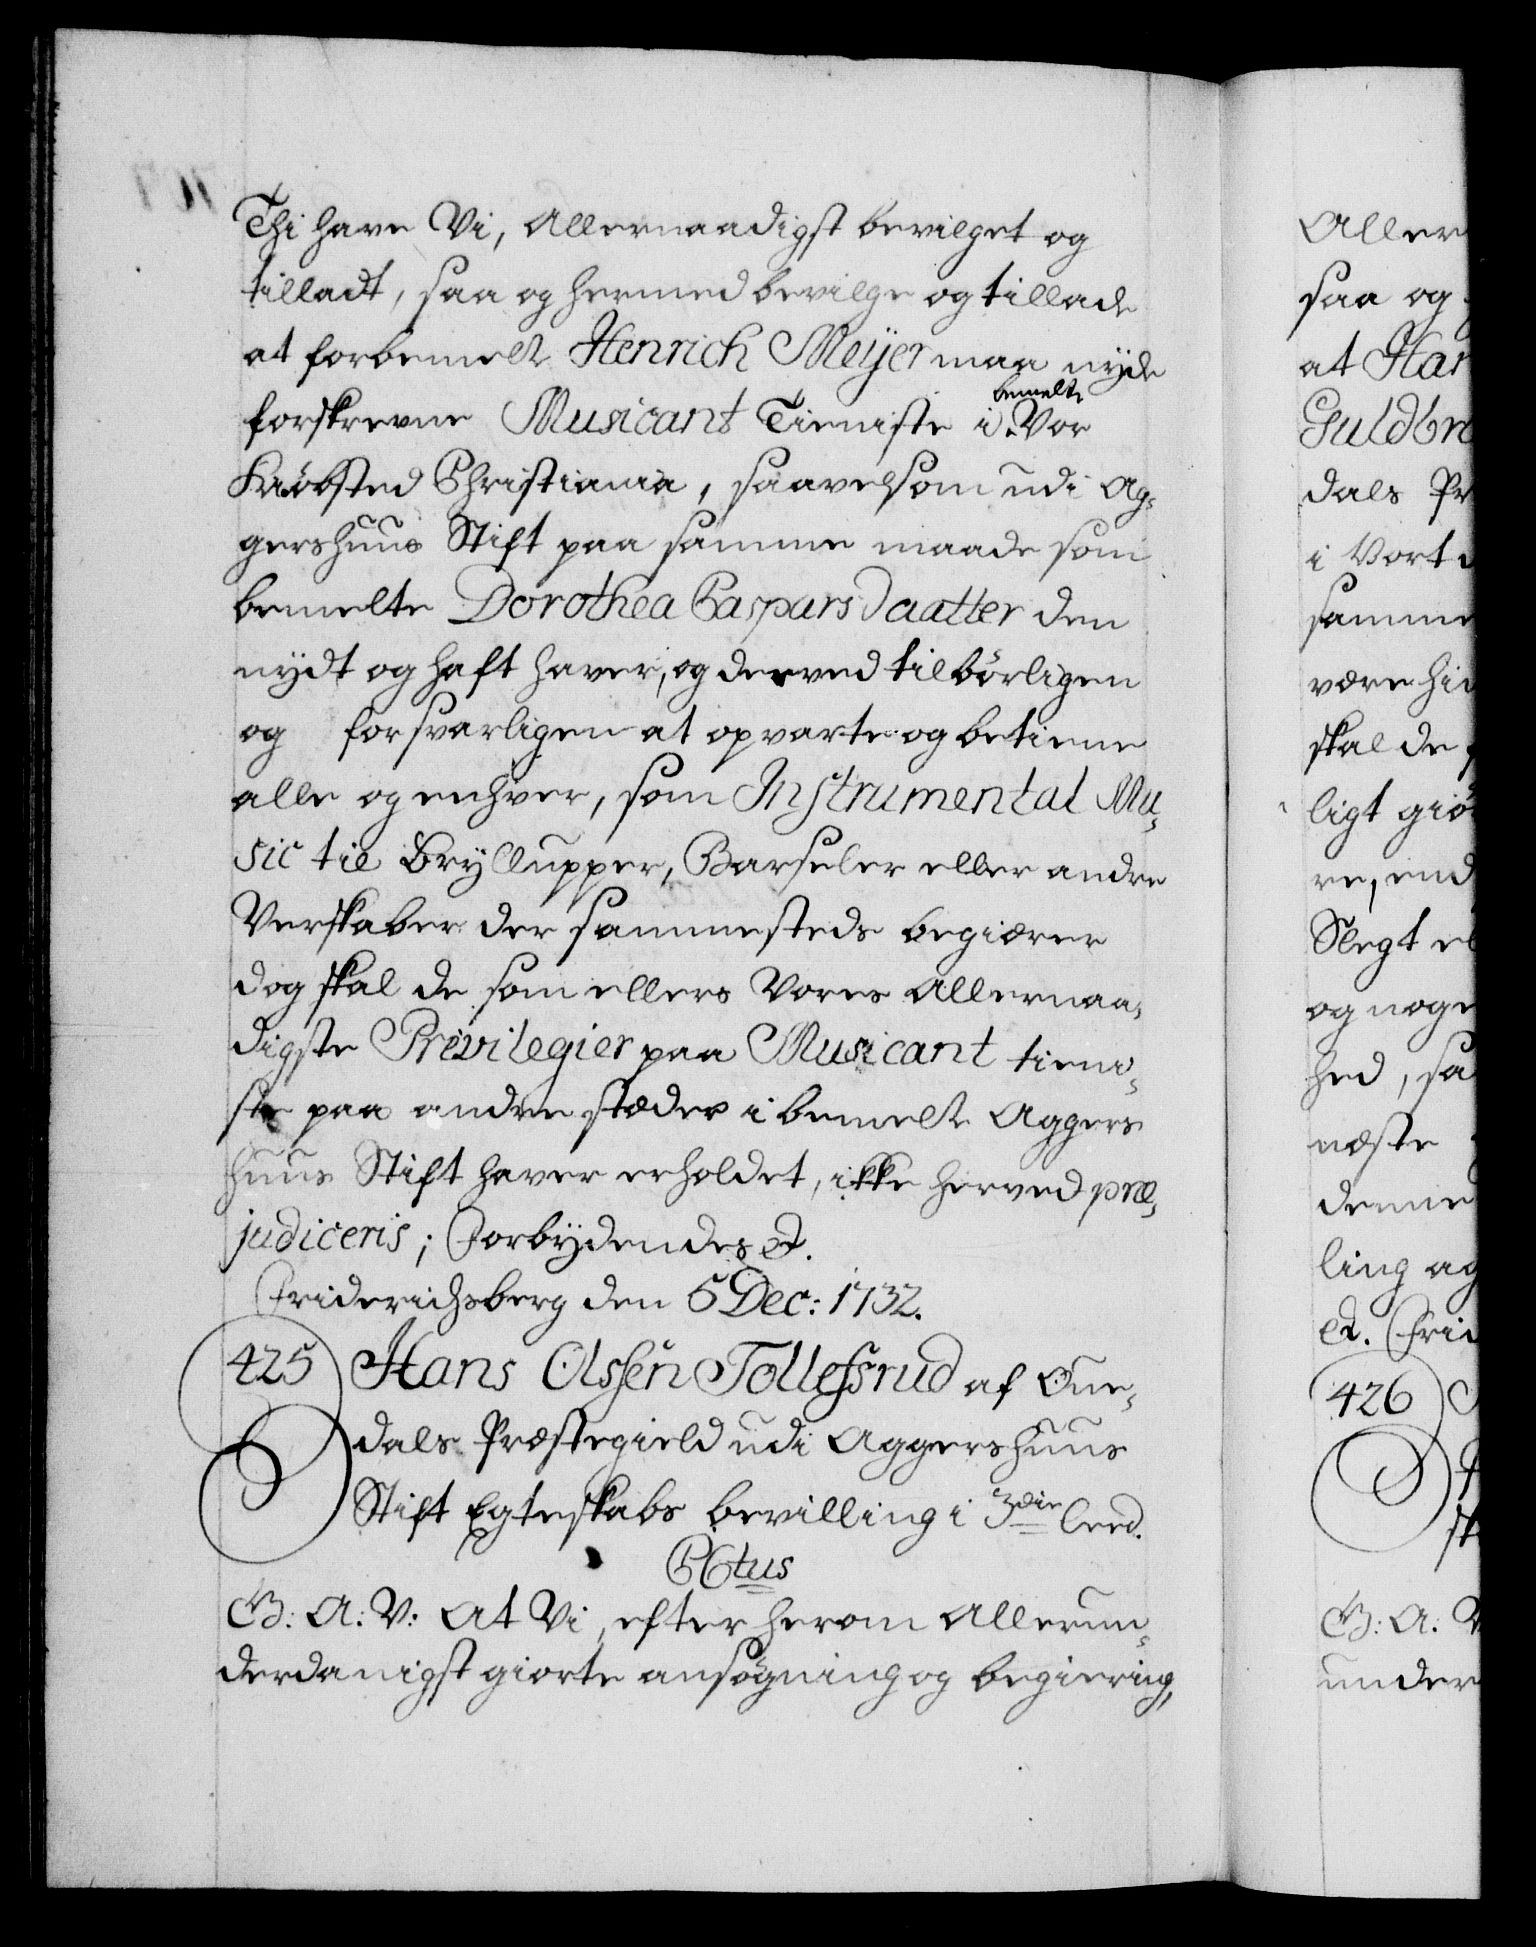 Thi have Vi, Allernaadigst bevilget og
tilladt, saa og hermed bevilge og tillade
at forbemelte Henrich Meijer maa nyde
forskrevne Musicant Tieniste i bemelte Vor
Kiøbsted Christiania, saavelsom udi Ag-
gershuus Stift paa samme maade som
bemelte Dorothea Caspars Daatter den
nydt og haft haver, og derved tilbørligen
og forsvarligen at opvarte og betiene
alle og enhver, som Instrumental Mu-
sic til Bryllupper, Barseler eller andre
Verskaber der sammesteds begierer
dog skal de som ellers Vores Allernaa-
digste Privilegier paa Musicant tieni-
ste paa andre stæder i bemelte Aggers
huus Stift haver erholdet, ikke herved præ-
judiceris; Forbydendes &.
Friderichsberg den 5 Dec: 1732.
425 Hans Olssen Tollefsrud af Øue-
dals Præstegield udi Aggershuus
Stift Egteskabs bevilling i 3die Leed.
G: A: V: At Vi, efter herom Allerun-
derdanigst giorte ansøgning og begiering,
Aller
saa og
at Han
Guldbr
dals Pr
i Vort
samme
være hi
skal de
ligt giø
re, end
Slegt el
og noge
hed, sa
næste
denne
ling ag
&. Frid
426
G: A: V
under